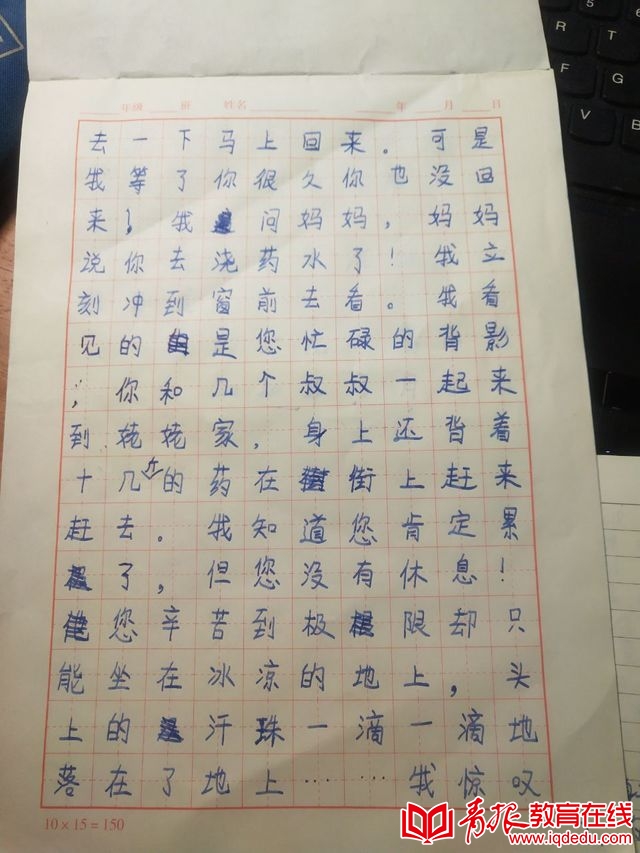 年级 班 姓名 年 月 日
去一下马上回来。可是
我等了你很久你也没回
来，我问妈妈，妈妈
说你去浇药水了！我立
刻冲到窗前去看。我看
见的是您忙碌的背影
，你和几个叔叔一起来
到姥姥家，身上还背着
十几斤的药在街上赶来
赶去。我知道您肯定累
了，但您没有休息！
您辛苦到极限却只
能坐在冰凉的地上，头
上的汗珠一滴一滴地
落在了地上……我惊叹
10×15=150
青报教育在线
www.iqdedu.com
R T
F G
V B
5
6